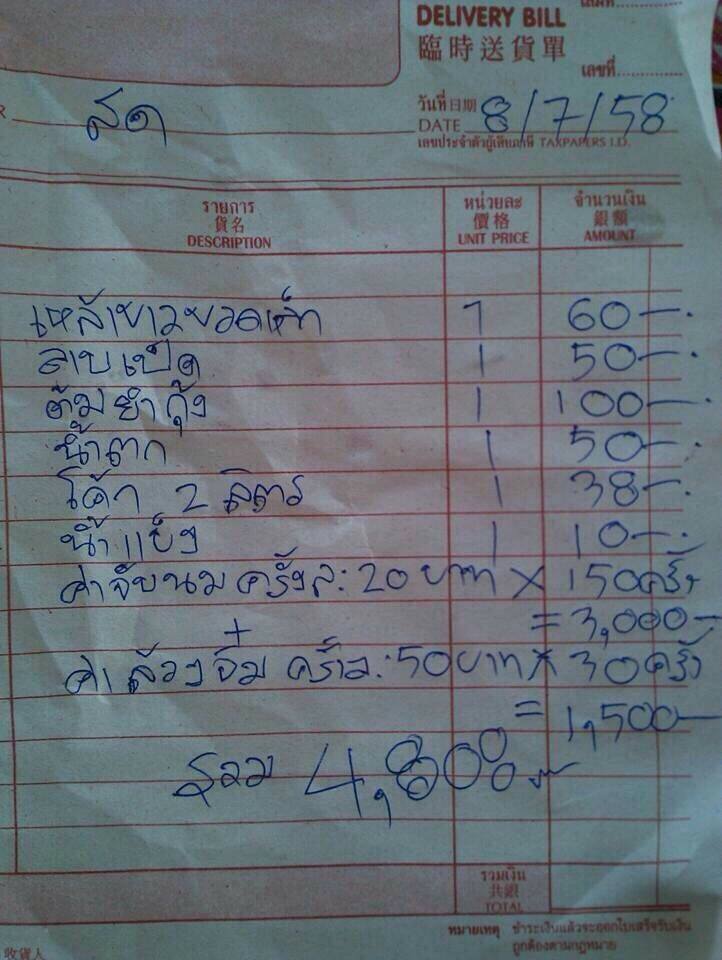 เล่มที่
DELIVERY BILL
臨時送貨單
เลขที่
สด
วันที่日期 8/7/58
DATE
เลขประจำตัวผู้เสียภาษี TAXPAYERS I.D.
รายการ หน่วยละ จำนวนเงิน
貨名 價格 銀額
DESCRIPTION UNIT PRICE AMOUNT
เหล้าขาว 1 60-.
ลาบเป็ด 1 50-.
ต้มยำกุ้ง 1 100-.
น้ำตก 1 50-.
โค้ก 2 ลิตร 1 38-.
น้ำแข็ง 1 10-.
ค่าจับนม ครั้งละ 20 บาท × 150 ครั้ง
= 3,000-
+
ค่าล้วงจิ๋ม ครั้งละ 50 บาท × 30 ครั้ง
= 1,500-
รวม 4,800
รวมเงิน
共銀
TOTAL
หมายเหตุ ชำระเงินแล้วจะออกใบเสร็จรับเงิน
ถูกต้องตามกฎหมาย
收貨人